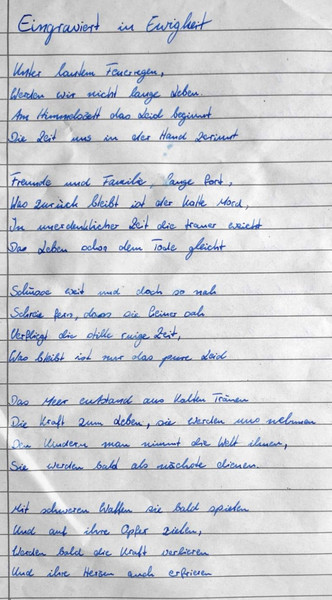 Eingraviert in Ewigkeit
Unter lautem Feuerregen,
Werden wir nicht lange leben.
Am Himmelszelt das Leid beginnt
Die Zeit uns in der Hand zerinnt
Freunde und Familie, lange fort,
Was zurück bleibt ist der kalte Mord,
In unerdenklicher Zeit die trauer weicht
Das Leben schon dem Tode gleicht
Schüsse weit und doch so nah
Schreie fern, dass sie keiner sah
Verfliegt die stille ruige Zeit,
Was bleibt ist nur das pure Leid
Das Meer entstand aus kalten Tränen
Die Kraft zum Leben, sie werden uns nehmen
Den Kindern man nimmt die Welt ihnen,
Sie werden bald als nächste dienen.
Mit schweren Waffen sie bald spielen
Und auf ihre Opfer zielen,
Werden bald die Kraft verlieren
Und ihre Herzen auch erfrieren